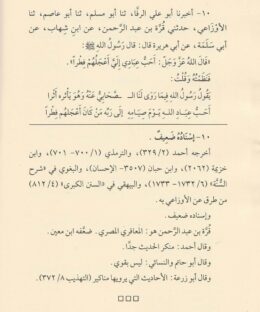 ١٠- أخبرنا أبو علي الرفَّا، ثنا أبو مسلم، ثنا أبو عاصم، ثنا
الأوْزَاعي، حدثني قُرَّة بن عبد الرَّحمن، عن ابن شِهاب، عن
أبي سَلَمَة، عن أبي هريرة قال: قال رَسُولُ اللهِ ﷺ:
«قَالَ اللهُ عَزَّ وَجَلَّ: أَحَبُّ عِبَادِي إِلَيَّ أَعْجَلُهُمْ فِطْراً».
فَنَظَمْتُهُ وَقُلْتُ:
يَقُولُ رَسُولُ اللهِ فِيمَا رَوَى لَنَا الـ ـصَّحَابِيُّ عَنْهُ وَهُوَ يَأْثُرُه أَثْرا
أَحَبُّ عِبَادِ اللهِ يَوْمَ صِيَامِهِ إِلَى رَبِّهِ مَنْ كَانَ أَعْجَلَهُمْ فِطْرا
١٠- إسْنَادُهُ ضَعِيفٌ.
أخرجه أحمد (٣٢٩/٢)، والترمذي (٧٠٠/١- ٧٠١)، وابن
خزيمة (٢٠٦٢)، وابن حبان (٣٥٠٧- الإحسان)، والبغوي في «شرح
السُّنَّة» (١٧٣٢/٦- ١٧٣٣)، والبيهقي في «السنن الكبرى» (٨١٢/٤)
من طرق عن الأوزاعي به.
وإسناده ضعيف.
قُرَّة بن عبد الرَّحمن هو: المعافري المصري. ضعَّفه ابن معين.
وقال أحمد: منكر الحديث جدًّا.
وقال أبو حاتم والنسائي: ليس بقوي.
وقال أبو زرعة: الأحاديث التي يرويها مناكير (التهذيب ٣٧٢/٨).